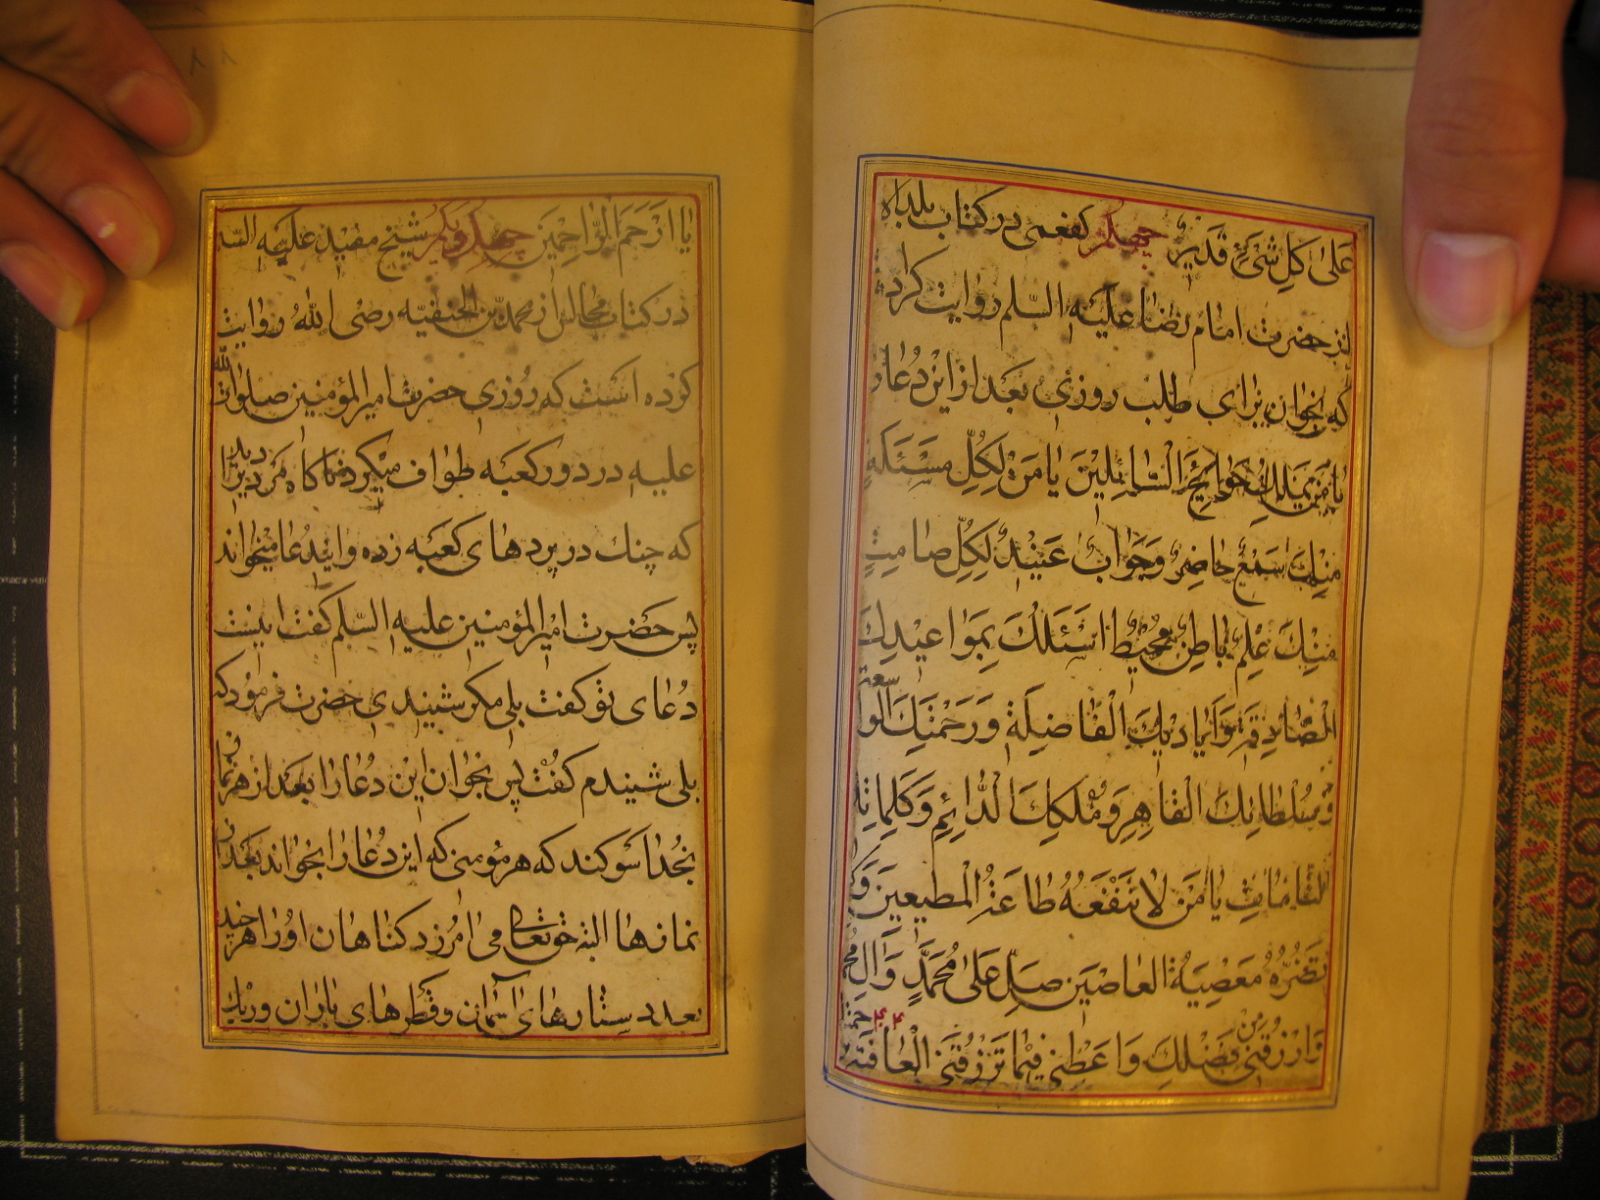 عَلیٰ كُلِّ شَیْءٍ قَدیرٌ جهلم كفعمى در كتاب بلداه
از حضرت امام رضا عَلَيْهِ السّلم روايت كرده
كه بخوان براى طلب روزى بعد از اين دُعا را
يا مَنْ يَمْلِكُ حَوائِجَ السّائِلينَ يا مَنْ لِكُلِّ مَسْئَلَةٍ
مِنْكَ سَمْعٌ حاضِرٌ وَجَوابٌ عَتيدٌ لِكُلِّ صامِتٍ
مِنْكَ عِلْمٌ باطِنٌ مُحيطٌ اَسْئَلُكَ بِمَواعيدِكَ
الصّادِقَةِ وَاَياديكَ الْفاضِلَةِ وَرَحْمَتِكَ الْواسِعَةِ
وَسُلْطانِكَ الْقاهِرِ وَمُلْكِكَ الدّائِمِ وَكَلِماتِكَ
التّامّاتِ يا مَنْ لا تَنْفَعُهُ طاعَةُ الْمُطيعينَ وَلا
تَضُرُّهُ مَعْصِيَةُ الْعاصينَ صَلِّ عَلیٰ مُحَمَّدٍ وَآلِ مُحَمَّدٍ
وَارْزُقْنى مِنْ فَضْلِكَ وَاَعْطِنى فيما تَرْزُقُنى الْعافِيَةَ
يا اَرْحَمَ الرّاحِمينَ جهل ويكم شيخ مفيد عليه السّ
در كتاب مجالس از محمّد بن الحنفيّه رضى الله روايت
كرده است كه روزى حضرت امير المؤمنين صلوات الله
عليه در دور كعبه طواف ميكرد ناكاه مرديرا ديد
كه چنك در پردهاى كعبه زده واين دعا ميخواند
پس حضرت امير المؤمنين عليه السّلم كفت اينست
دُعاى تو كفت بلى مكر شنيدى حضرت فرمود كه
بلى شنيدم كفت پس بخوان اين دُعا را بعد از هر نماز
بخدا سوكند كه هر مؤمنى كه اين دُعا را بخواند بعد از
نمازها البته حقتعالى مى امرزد كناهان او را هرچند
بعدد ستارهاى آسمان وقطرهاى باران وريك